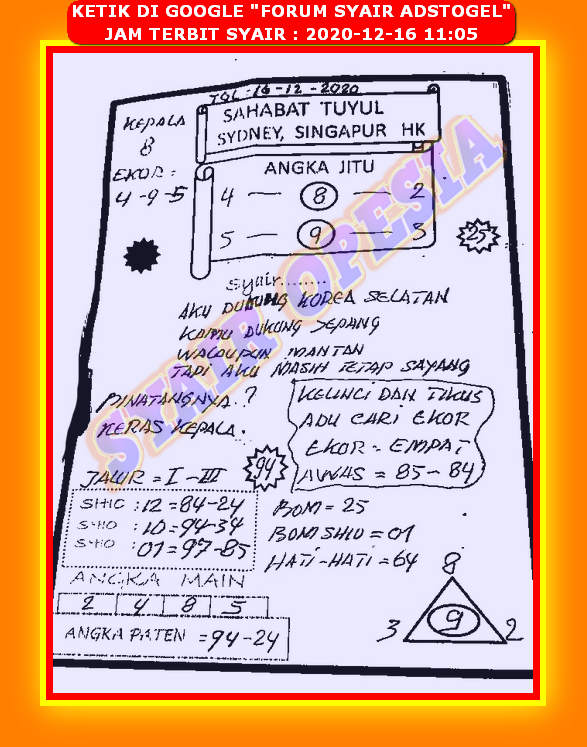 KETIK DI GOOGLE "FORUM SYAIR ADSTOGEL"
JAM TERBIT SYAIR : 2020-12-16 11:05
TGL-16-12-2020
SAHABAT TUYUL
SYDNEY, SINGAPUR HK
KEPALA
8
EKOR :
4-9-5
ANGKA JITU
4 — 8 — 2
5 — 9 — 3
25
Syair........
AKU DUKUNG KOREA SELATAN
KAMU DUKUNG JEPANG
WALAUPUN MANTAN
TAPI AKU MASIH TETAP SAYANG
BINATANGNYA..?
KERAS KEPALA.
KELINCI DAN TIKUS
ADU CARI EKOR
EKOR = EMPAT
AWAS = 85-84
94
JALUR = I - III
SHIO : 12 = 84-24
SHIO : 10 = 94-34
SHIO : 01 = 97-85
BOM = 25
BOM SHIO = 01
HATI-HATI = 64
ANGKA MAIN
2 4 8 5
ANGKA PATEN = 94-24
8
9
3 2
SYAIR OPESIA